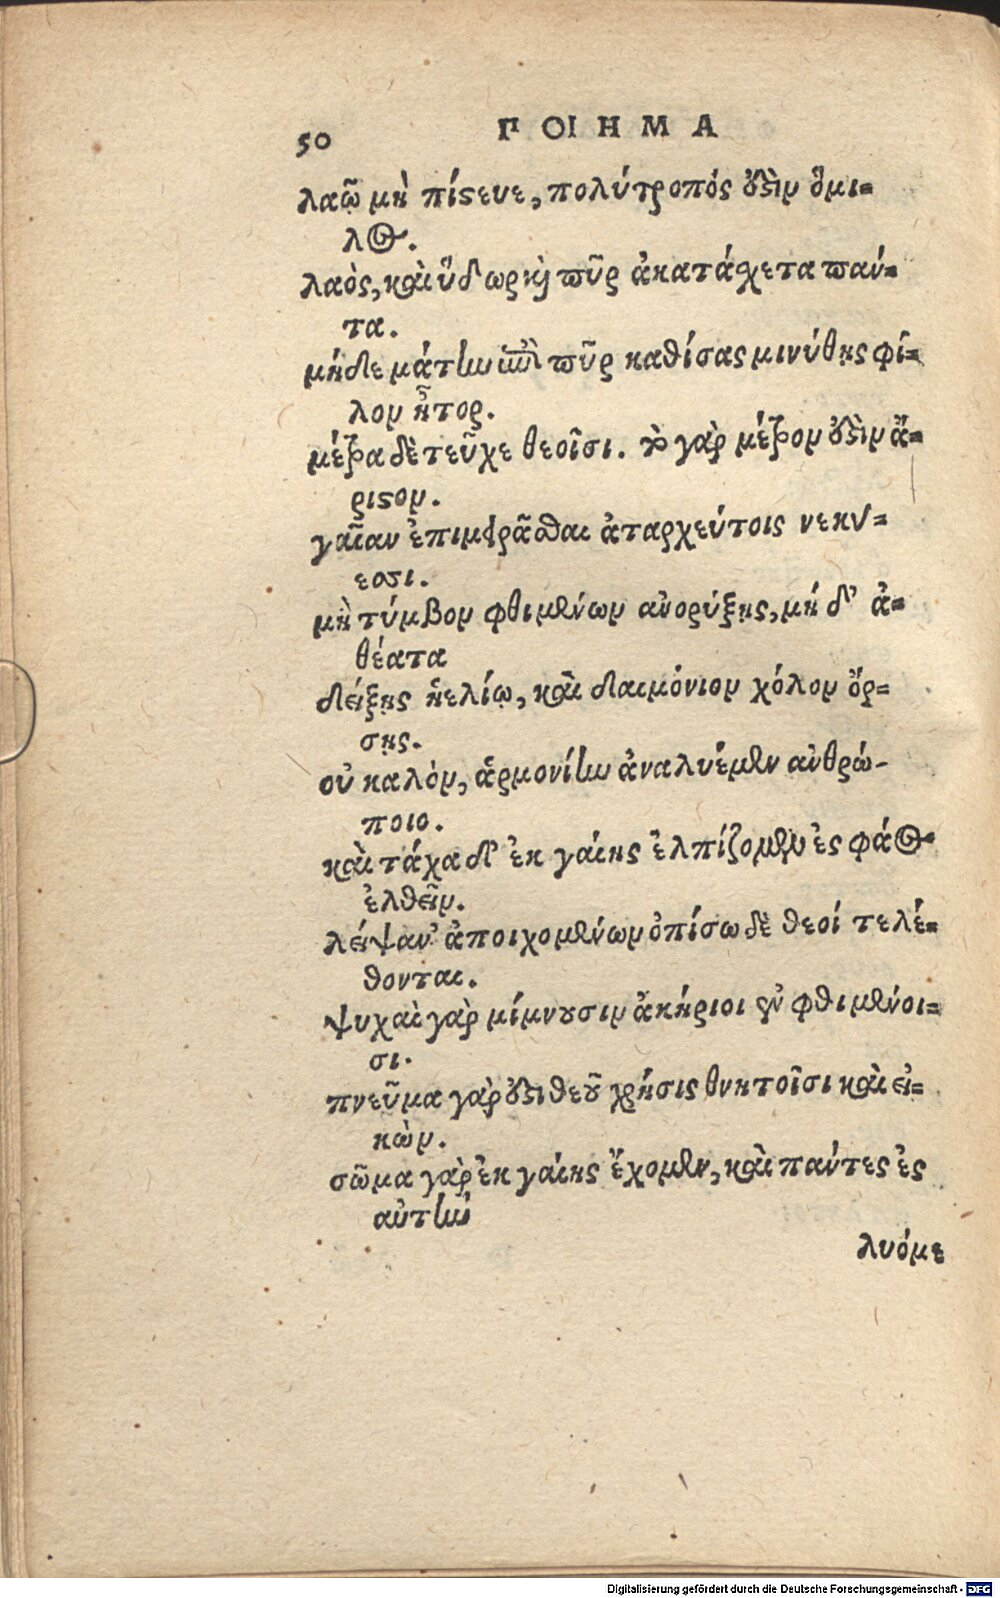 50 ΠΟΙΗΜΑ
λαῷ μὴ πίϛευε, πολύτροπός ὅϛιν ὅμι=
λος.
λαὸς, καὶ ὕδωρ καὶ πῦρ ἀκατάχετα πάν=
τα.
μήδε μάτην ἐπὶ πῦρ καθίσας μινύθῃς φί=
λον ἦτορ.
μέτρα δὲ τεῦχε θεοῖσι. τὸ γὰρ μέτρον ὅϛὶν ἄ=
ριϛον.
γαῖαν ἐπιμοιρᾶσθαι ἀταρχεύτοις νεκύ=
εσσι.
μὴ τύμβον φθιμένων ἀνορύξῃς, μή δ' ἀ=
θέατα
δείξῃς ἠελίῳ, καὶ δαιμόνιον χόλον ὄρ=
σῃς.
οὐ καλὸν, ἁρμονίην ἀναλυέμεν ἀνθρώ-
ποιο.
καὶ τάχα δ' ἐκ γαίης ἐλπίζομεν ἐς φάος
ἐλθεῖν.
λείψαν' ἀποιχομένων ὀπίσω δὲ θεοί τελέ=
θονται.
ψυχαὶ γὰρ μίμνουσιν ἀκήριοι ἐν φθιμένοι=
σι.
πνεῦμα γὰρ ὅϛι θεοῦ χρῆσις θνητοῖσι καὶ εἰ=
κὼν.
σῶμα γὰρ ἐκ γαίης ἔχομεν, καὶ πάντες ἐς
αὐτὴν
λυόμε
Digitalisierung gefördert durch die Deutsche Forschungsgemeinschaft - DFG